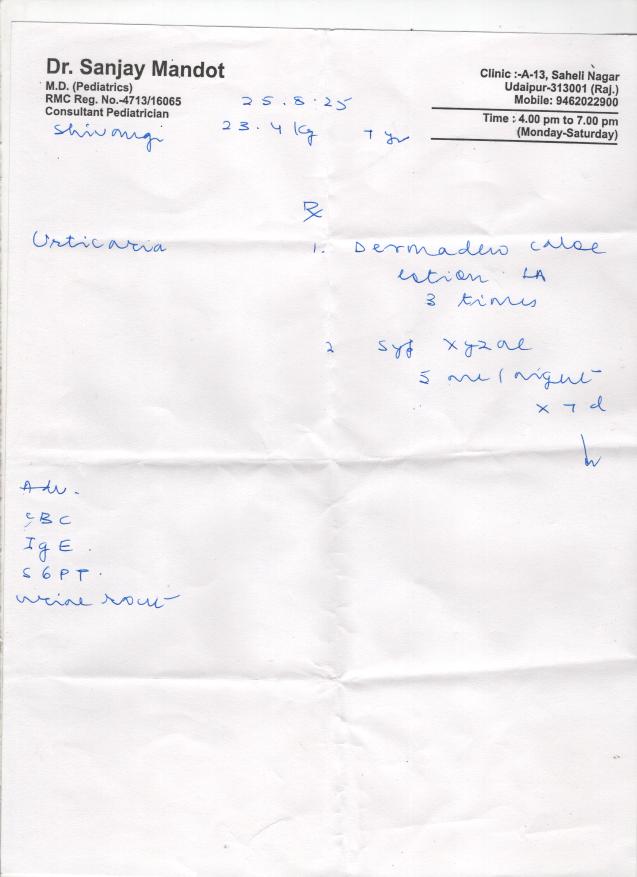 Dr. Sanjay Mandot
M.D. (Pediatrics)
RMC Reg. No.-4713/16065
Consultant Pediatrician
Clinic :-A-13, Saheli Nagar
Udaipur-313001 (Raj.)
Mobile: 9462022900
Time : 4.00 pm to 7.00 pm
(Monday-Saturday)
25.8.25
Shivangi 23.4 kg 7 yr
Rx
Urticaria
1. Dermadew caloe
lotion LA
3 times
2 syp xyzal
5 ml / night
x 7 d
Adv.
CBC
IgE.
SGPT.
urine rout